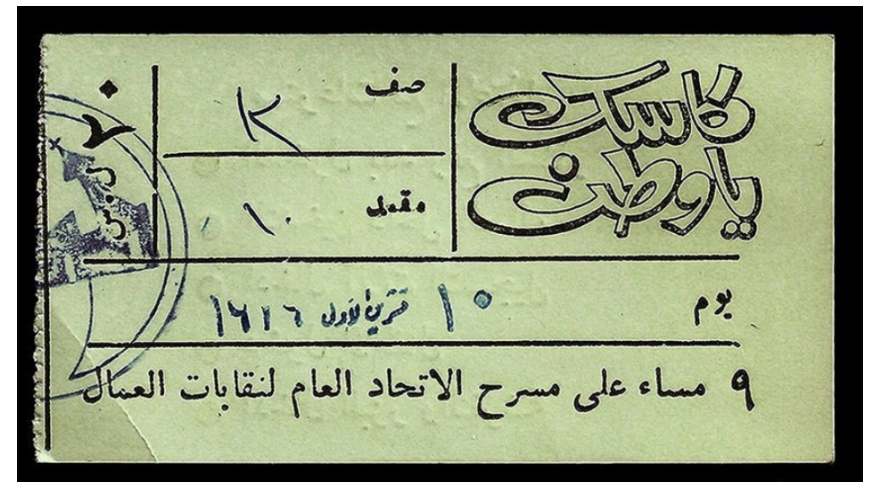 كاسك
يا وطن
صف ك
مقعد ١٠
٢٠ ل.س
يوم ١٥ تشرين الأول
٩ مساء على مسرح الاتحاد العام لنقابات العمال